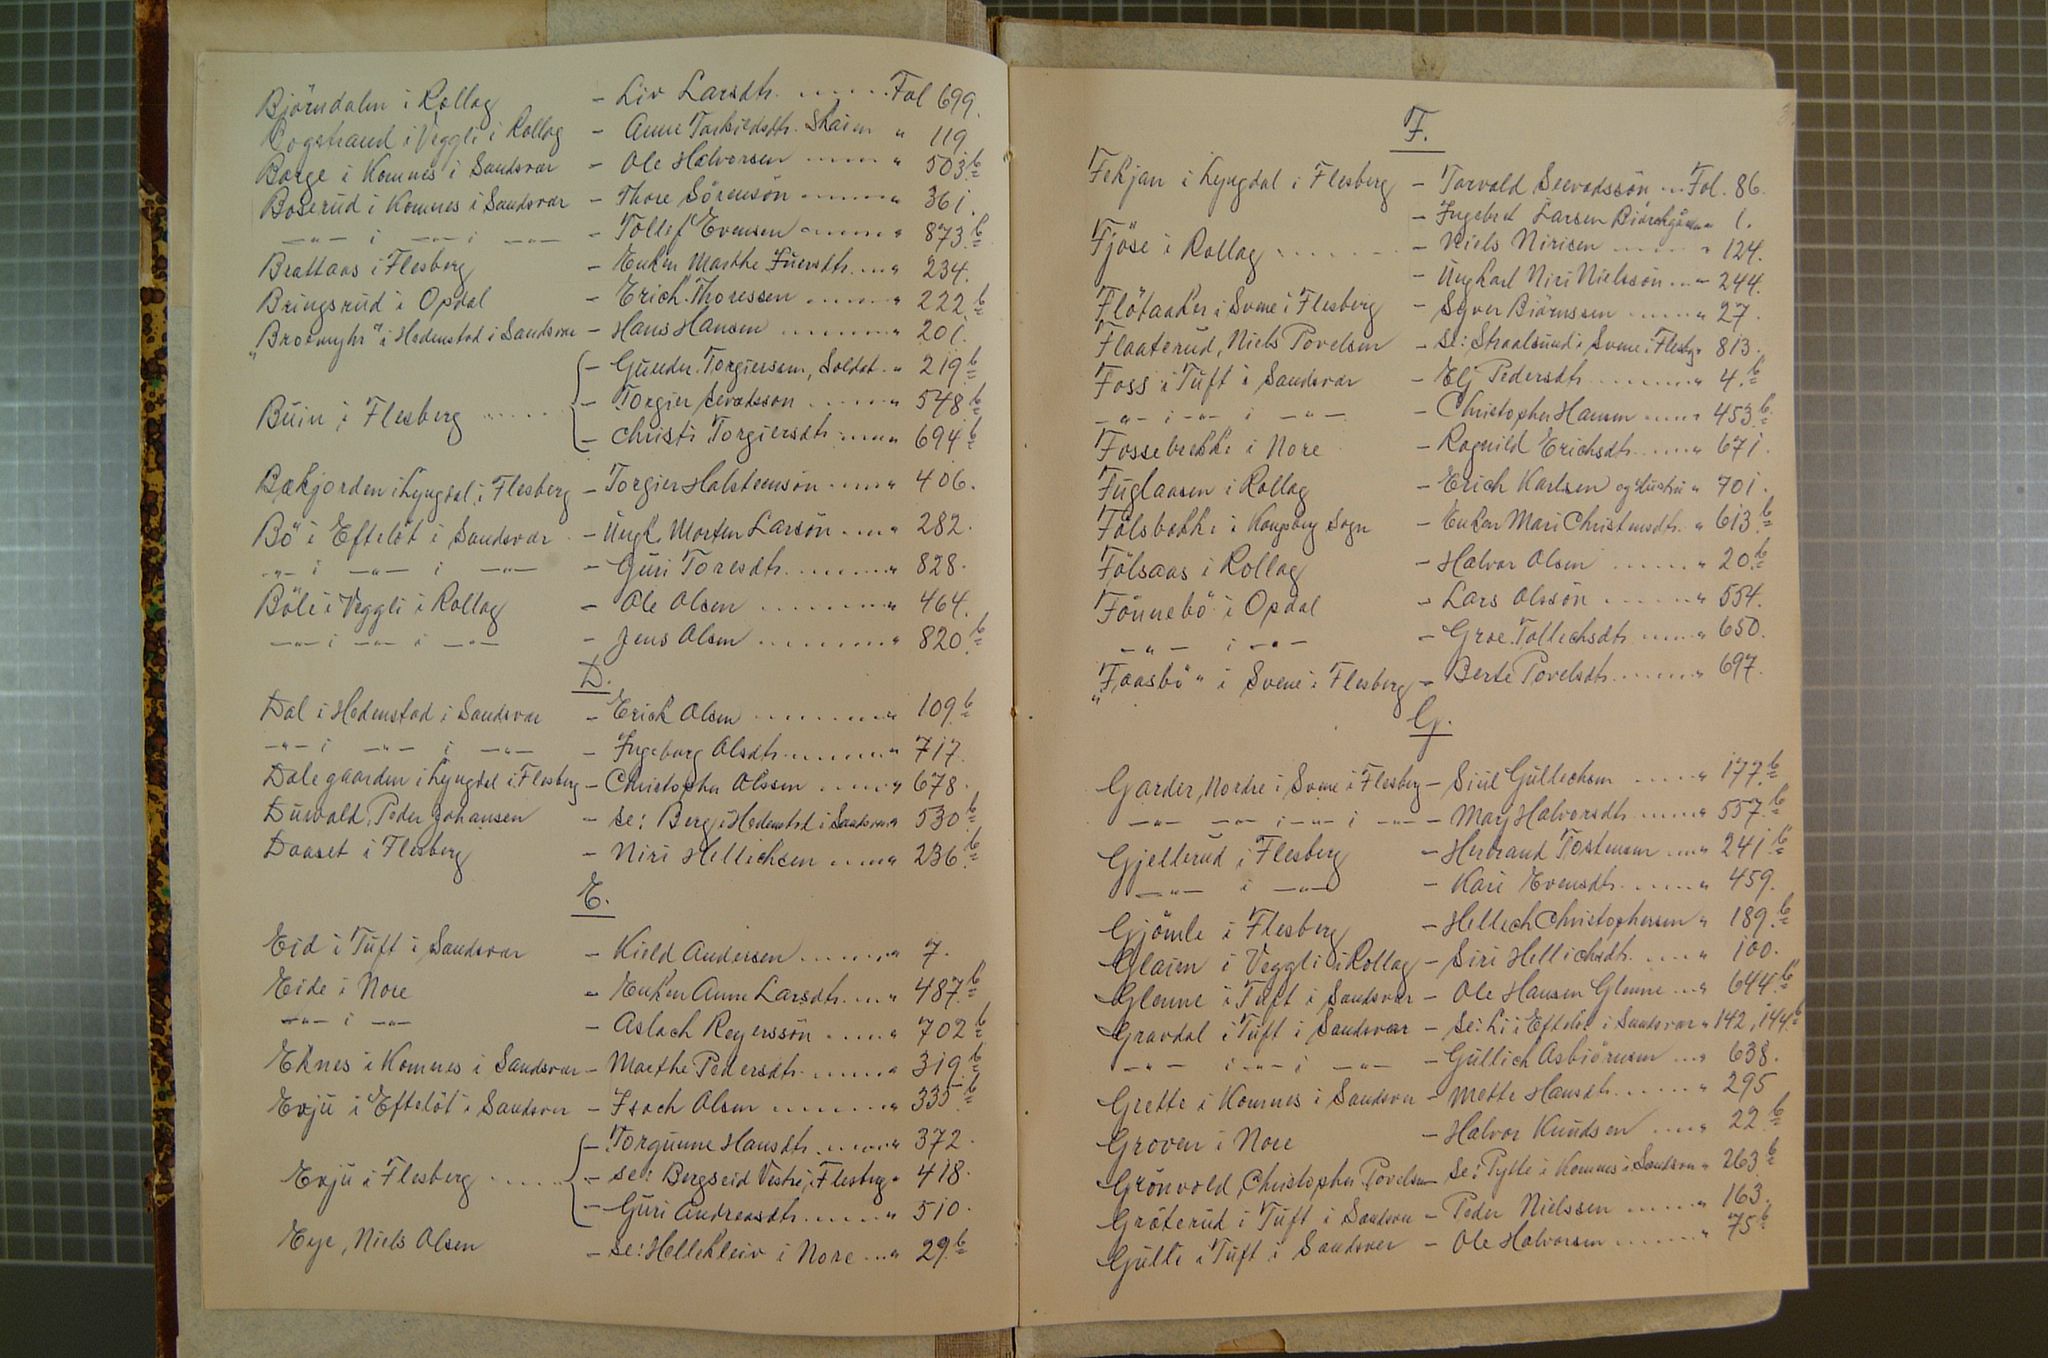 Björndalen i Rollag - Liv Larsdtr. ........ Fol 699.
Bogstrand i Veggli i Rollag - Anne Torkildsdtr. Skaien " 119
Borge i Komnes i Sandsvær - Ole Halvorsen ....... " 503 b
Boserud i Komnes i Sandsvær - Thore Sörensön ....... " 361.
—"— i —"— i —"— - Tollef Evensen ....... " 873 b
Brattaas i Flesberg - Enken Marthe Juersdtr. .... " 234.
Bringsrud i Opdal - Erich Thoressen ....... " 222 b
"Broemyhr" i Hedenstad i Sandsvær - Hans Hansen ....... " 201.
- Gunder Torgiersen, Soldat. " 219 b
Buin i Flesberg ...... - Torgier Sevadsson ....... " 548 b
- Christi Torgiersdtr. .... " 694 b
Bækjorden i Lyngdal i Flesberg - Torgier Halsteensön ..... " 406.
Bö i Eftelöt i Sandsvær - Ungk. Morten Larsön .... " 282.
—"— i —"— i —"— - Guri Toresdtr. ....... " 828.
Böle i Veggli i Rollag - Ole Olsen ......... " 464.
—"— i —"— i —"— - Jens Olsen ......... " 820 b
D.
Dal i Hedenstad i Sandsvær - Erick Olsen ......... " 109 b
—"— i —"— i —"— - Ingeborg Olsdtr. ....... " 717.
Dalegaarden i Lyngdal i Flesberg - Christopher Olssen ..... " 678.
Duwald, Peder Johansen - se: Berg i Hedenstad i Sandsvær " 530 b
Daaset i Flesberg - Niri Hellichsen ..... " 236 b
E.
Eid i Tuft i Sandsvær - Kield Andersen ....... " 7.
Eide i Nore - Enken Anne Larsdtr. .... " 487 b
—"— i —"— - Aslach Reyerssön ..... " 702 b
Eknes i Komnes i Sandsvær - Marthe Pedersdtr. ..... " 319 b
Evju i Eftelöt i Sandsvær - Isach Olsen ......... " 335 b
- Torgunne Hansdtr. ..... " 372.
Evju i Flesberg ...... - se: Bergseid Vestre, i Flesberg " 418.
- Guri Andreasdtr. ..... " 510.
Eye, Niels Olsen - se: Hellekleiv i Nore ... " 29 b
F.
Fekjan i Lyngdal i Flesberg - Torvald Seevadssön ... Fol. 86.
- Ingebret Larsen " 1.
Fjöse i Rollag ...... - Niels Nirisen ....... " 124.
- Ungkarl Niri Nielssön ... " 244.
Flötaaker i Svene i Flesberg - Syver Biörnssen ..... " 27.
Flaaterud, Niels Povelsen - se: Straalsund i Svene i Flesbg. " 813.
Foss i Tuft i Sandsvær - Elj Pedersdtr. ....... " 4. b
—"— i —"— i —"— - Christopher Hansen .... " 453 b
Fossebrekke i Nore - Ragnild Erichsdtr. ..... " 671.
Fuglaasen i Rollag - Erich Karlsen og Hustru " 701.
Fölsbekk i Kongsberg Sogn - Enken Mari Christensdtr. " 613 b
Fölsaas i Rollag - Halvor Olsen ...... " 20 b
Fönnebö i Opdal - Lars Olssön ....... " 554.
—"— i —"— - Groe Tollechsdtr. ..... " 650.
"Faasbö" i Svene i Flesberg - Berte Povelsdtr. ...... " 697.
G.
Garder, Nordre i Svene i Flesberg - Siul Gullechsen ..... " 177 b
—"— —"— i —"— i —"— - Mary Halvorsdtr. ..... " 557 b
Gjellerud i Flesberg - Herbrand Tostensen .... " 241 b
—"— i —"— - Kari Evensdtr. ....... " 459.
Gjömle i Flesberg - Hellech Christophersen " 189 b
Glaim i Veggli i Rollag - Siri Hellichsdtr. ..... " 100.
Glenne i Tuft i Sandsvær - Ole Hansen Glenne ... " 644 b
Gravdal i Tuft i Sandsvær - se: Li i Eftelöt i Sandsvær " 142, 144 b
—"— i —"— i —"— - Gullich Asbiörnsen ... " 638.
Grette i Komnes i Sandsvær - Mette Hansdtr. ..... " 295
Groven i Nore - Halvor Knudsen .... " 22 b
Grönvold, Christopher Povelsen - se: Pytte i Komnes i Sandsvær " 263 b
Gröterud i Tuft i Sandsvær - Peder Nielssen ..... " 163.
Gutte i Tuft i Sandsvær - Ole Halvorsen ....... " 75 b